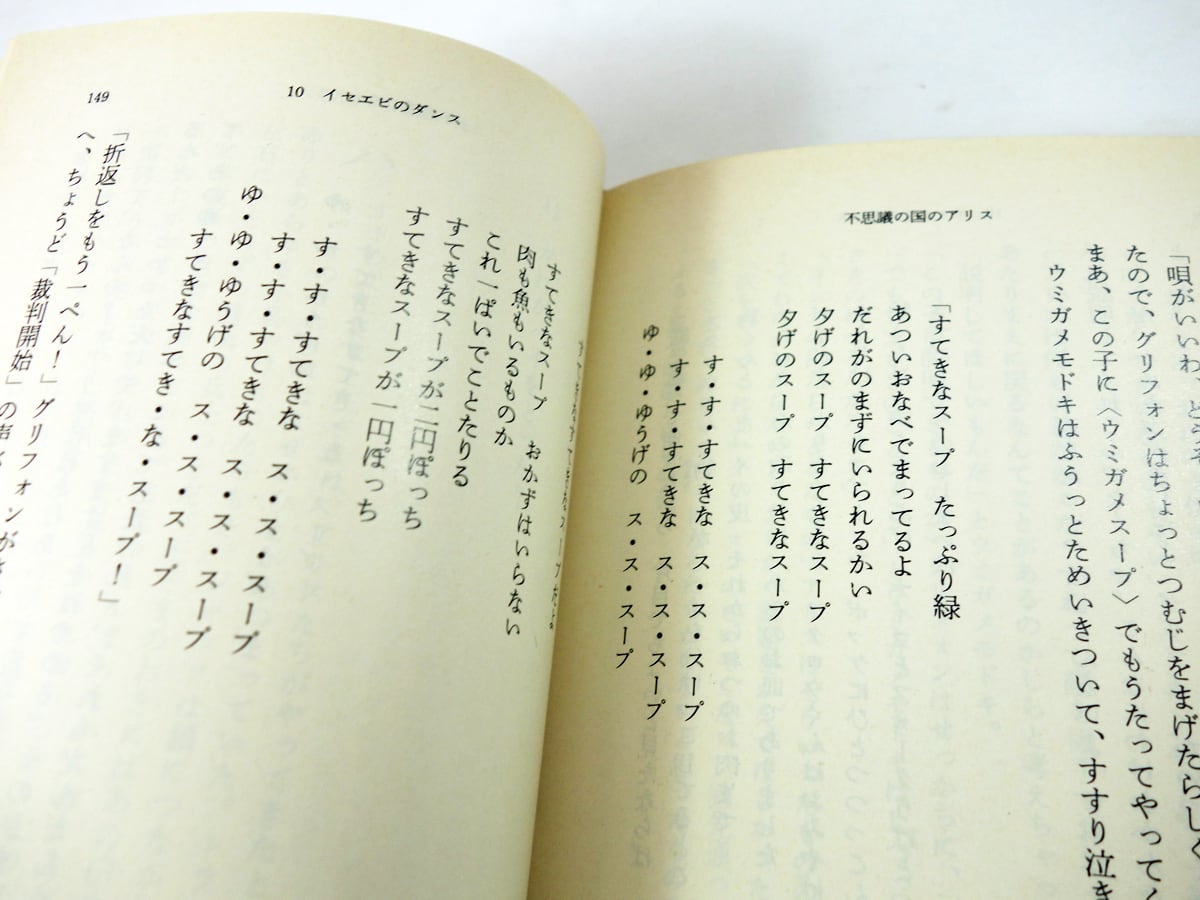 不思議の国のアリス
「唄がいいわ、どうぞ
たので、グリフォンはちょっとつむじをまげたらしく
まあ、この子に〈ウミガメスープ〉でもうたってやってく
ウミガメモドキはふうっとためいきついて、すすり泣き
「すてきなスープ　たっぷり緑
あついおなべでまってるよ
だれがのまずにいられるかい
夕げのスープ　すてきなスープ
夕げのスープ　すてきなスープ
す・す・すてきな　ス・ス・スープ
す・す・すてきな　ス・ス・スープ
ゆ・ゆ・ゆうげの　ス・ス・スープ
149
10　イセエビのダンス
すてきなスープ　おかずはいらない
肉も魚もいるものか
これ一ぱいでことたりる
すてきなスープが二円ぽっち
すてきなスープが一円ぽっち
す・す・すてきな　ス・ス・スープ
す・す・すてきな　ス・ス・スープ
ゆ・ゆ・ゆうげの　ス・ス・スープ
すてきなすてき・な・スープ！」
「折返しをもう一ぺん！」グリフォンが
へ、ちょうど「裁判開始」の声